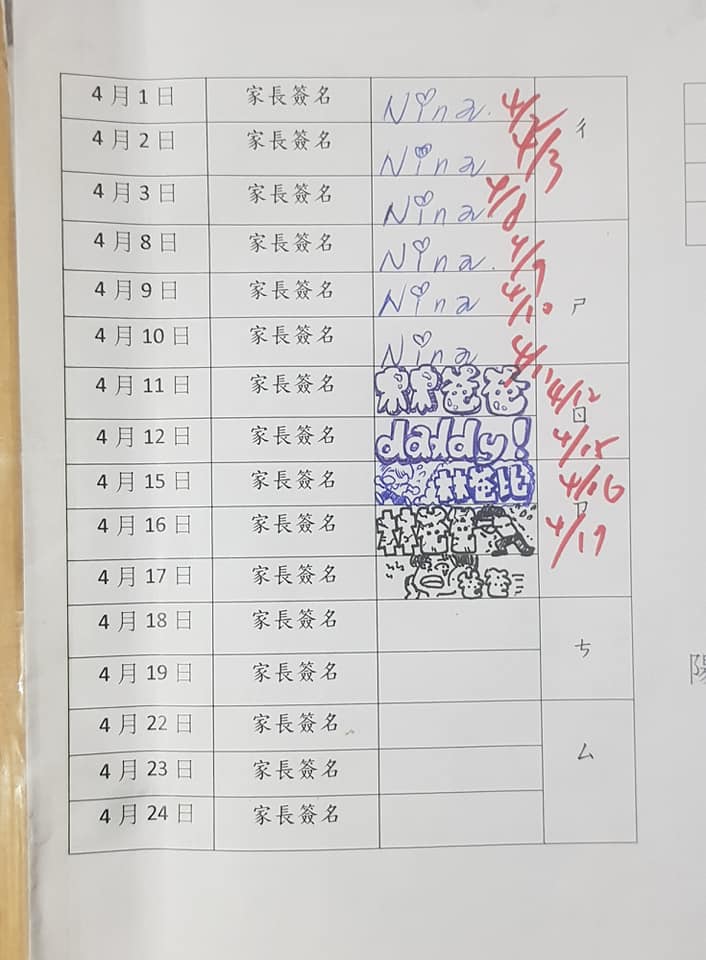 4月1日 家長簽名 Nina. 4/2 ㄔ
4月2日 家長簽名 Nina 4/3
4月3日 家長簽名 Nina 4/8
4月8日 家長簽名 Nina. 4/9
4月9日 家長簽名 Nina 4/10 ㄕ
4月10日 家長簽名 Nina 4/11
4月11日 家長簽名 林爸爸 4/12 ㄖ
4月12日 家長簽名 daddy! 4/15
4月15日 家長簽名 林爸比 4/16
4月16日 家長簽名 林爸爸 4/17 ㄗ
4月17日 家長簽名 爸爸
4月18日 家長簽名 ㄘ
4月19日 家長簽名
4月22日 家長簽名 ㄙ
4月23日 家長簽名
4月24日 家長簽名